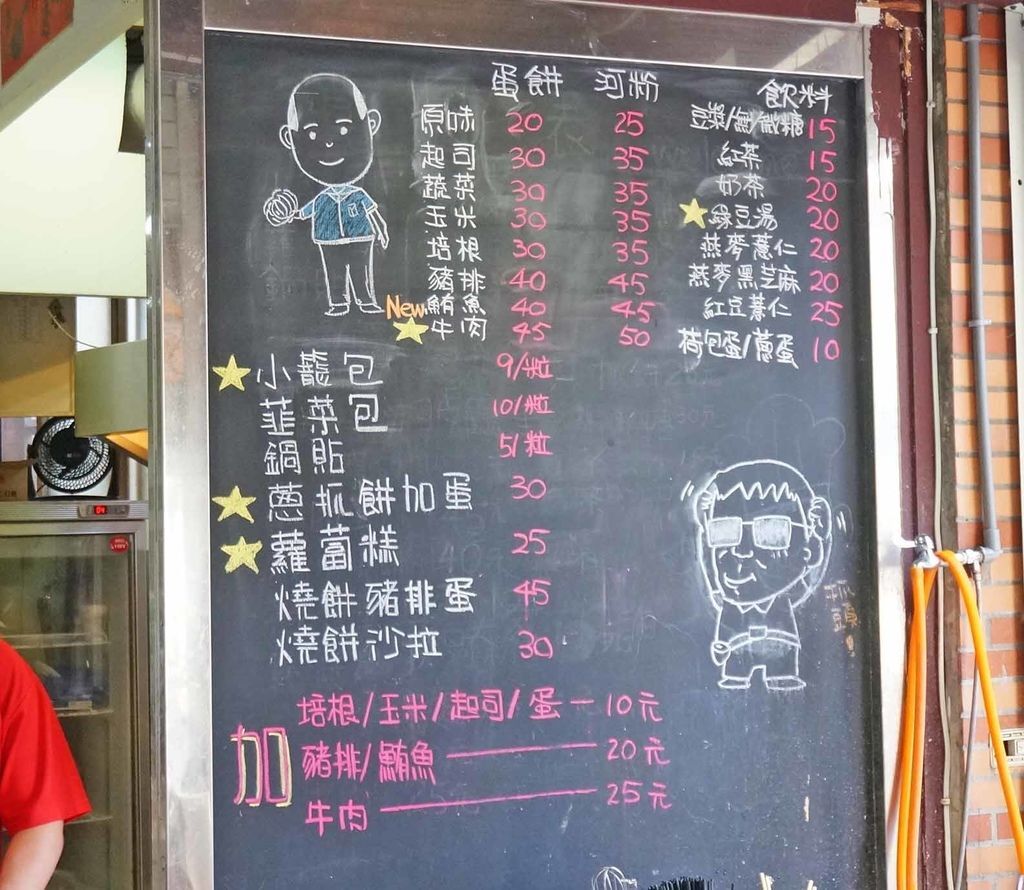 蛋餅 河粉
原味 20 25
起司 30 35
蔬菜 30 35
玉米 30 35
培根 30 35
豬排 40 45
New 鮪魚 40 45
牛肉 45 50
飲料
豆漿/無/微糖 15
紅茶 15
奶茶 20
綠豆湯 20
燕麥薏仁 20
燕麥黑芝麻 20
紅豆薏仁 25
荷包蛋/蔥蛋 10
小籠包 9/粒
韮菜包 10/粒
鍋貼 5/粒
蔥抓餅加蛋 30
蘿蔔糕 25
燒餅豬排蛋 45
燒餅沙拉 30
加
培根/玉米/起司/蛋－10元
豬排/鮪魚—20元
牛肉—25元